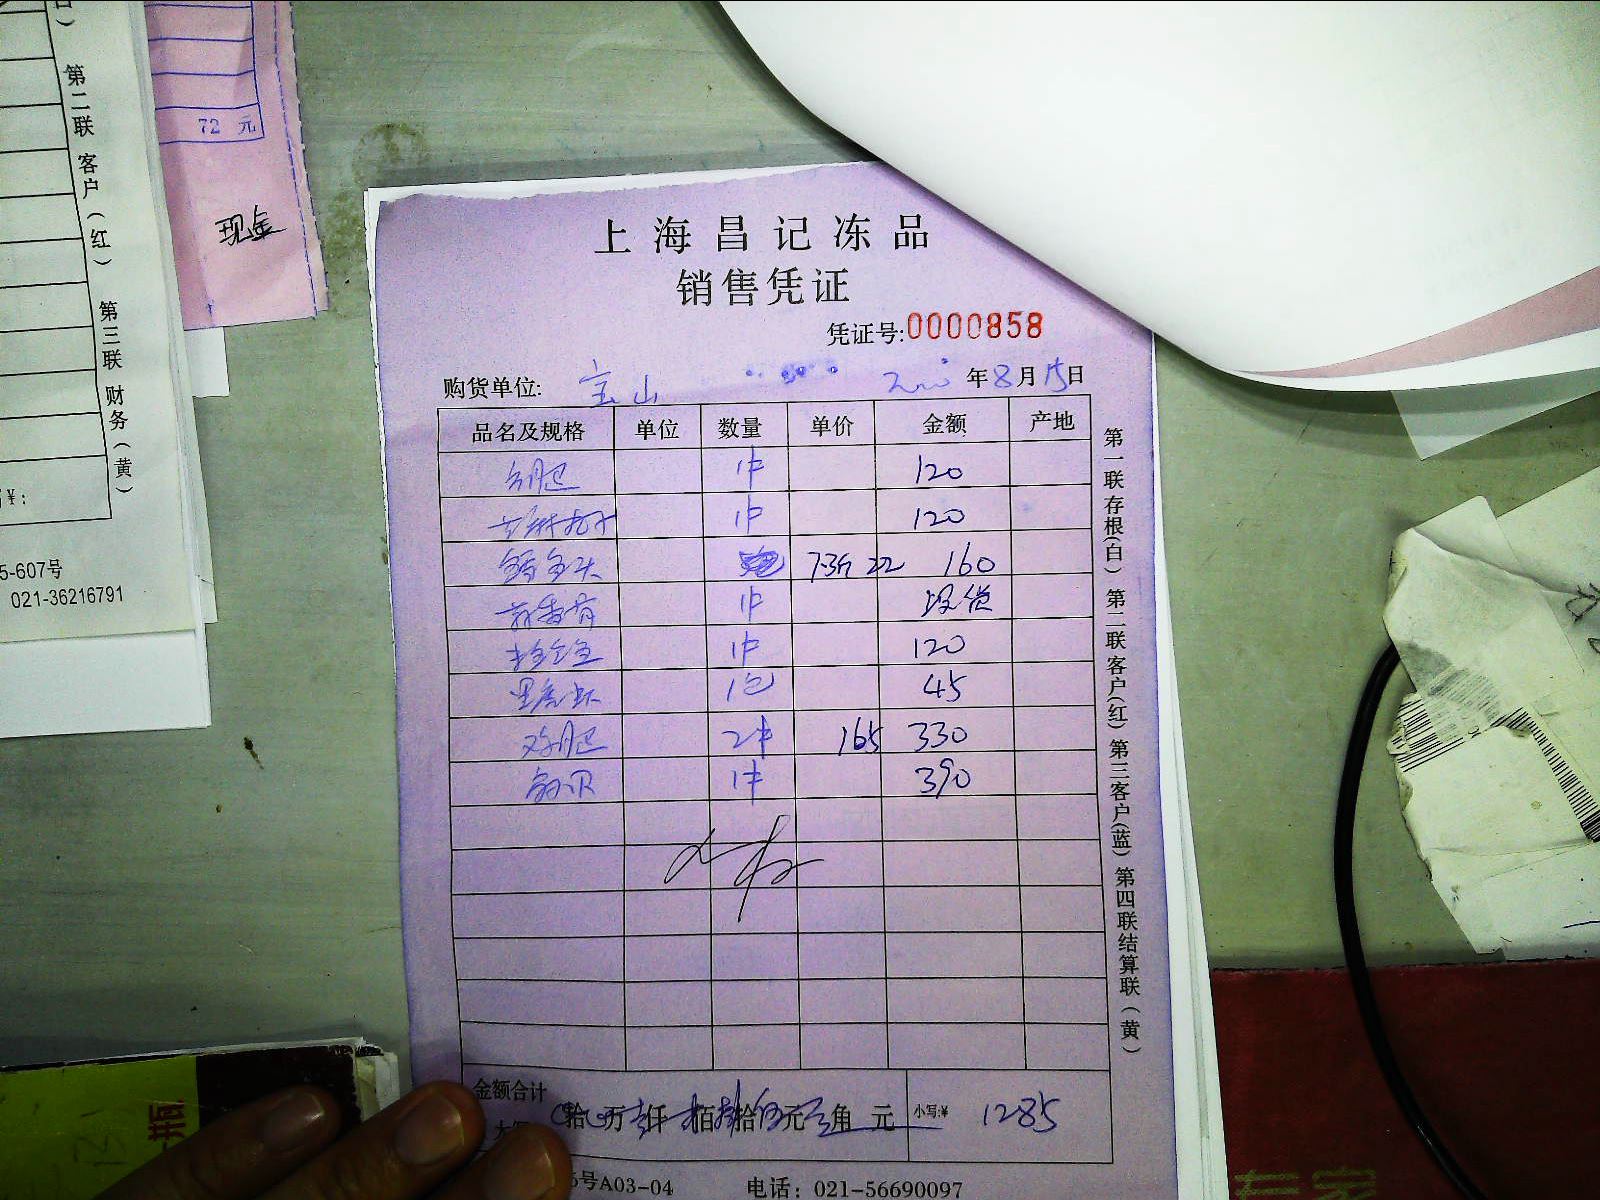 第二联 客户（红） 第三联 财务（黄）
72 元
现金
5-607号
021-36216791
上海昌记冻品
销售凭证
凭证号:0000858
购货单位: 宝山 年 8 月 15 日
品名及规格 单位 数量 单价 金额 产地
1件 120
1件 120
7.3斤 22 160
1件 没货
1件 120
黑虎虾 1包 45
鸡腿 2件 165 330
1件 390
第一联存根(白) 第二联客户(红) 第三客户(蓝) 第四联结算联（黄）
金额合计
拾 万 仟 佰 拾 元 角 元 小写:¥ 1285
号A03-04 电话：021-56690097